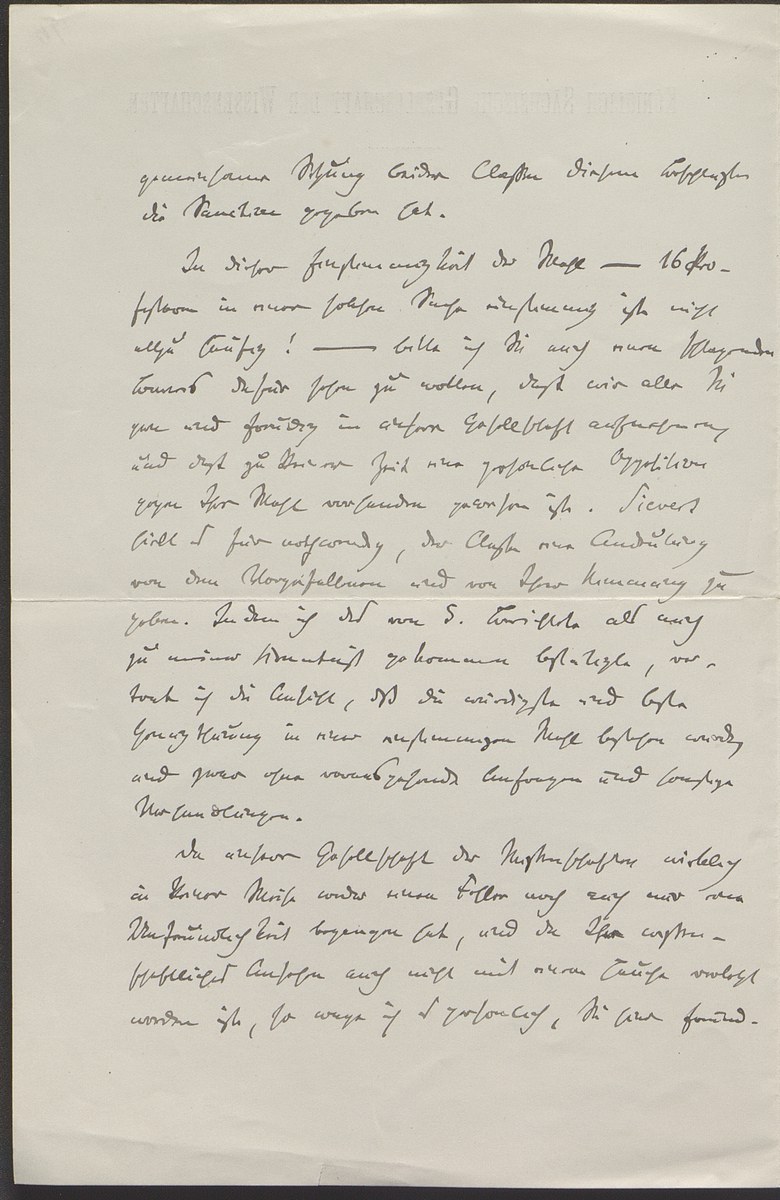 KÖNIGLICH SÄCHSISCHE GESELLSCHAFT DER WISSENSCHAFTEN
gemeinsame Sitzung beider Classen diesem Beschlusse
die Sanction gegeben hat.
In dieser Einstimmigkeit der Wahl — 16 Pro-
fessoren in einer solchen Sache einstimmig ist nicht
allzu häufig! — bitte ich Sie auch einen schlagenden
Beweis dafür sehen zu wollen, dass wir alle Sie
gern und freudig in unsere Gesellschaft aufnehmen,
und dass zu keiner Zeit eine persönliche Opposition
gegen Ihre Wahl vorhanden gewesen ist. Sievers
hielt es für nothwendig, der Classe eine Andeutung
von dem Vorgefallenen und von Ihrer Meinung zu
geben. Indem ich das von S. Berichtete als auch
zu meiner Kenntniss gekommen bestätigte, ver-
trat ich die Ansicht, dass die würdigste und beste
Genugthuung in einer einstimmigen Wahl bestehen würde,
und zwar ohne vorausgehende Anfragen und sonstige
Verhandlungen.
Da unsere Gesellschaft der Wissenschaften wirklich
in keiner Weise weder einen Fehler noch auch nur eine
Unfreundlichkeit begangen hat, und da Ihr wissen-
schaftliches Ansehen auch nicht mit einem Hauche verletzt
worden ist, so wage ich es persönlich, Sie hier freund-